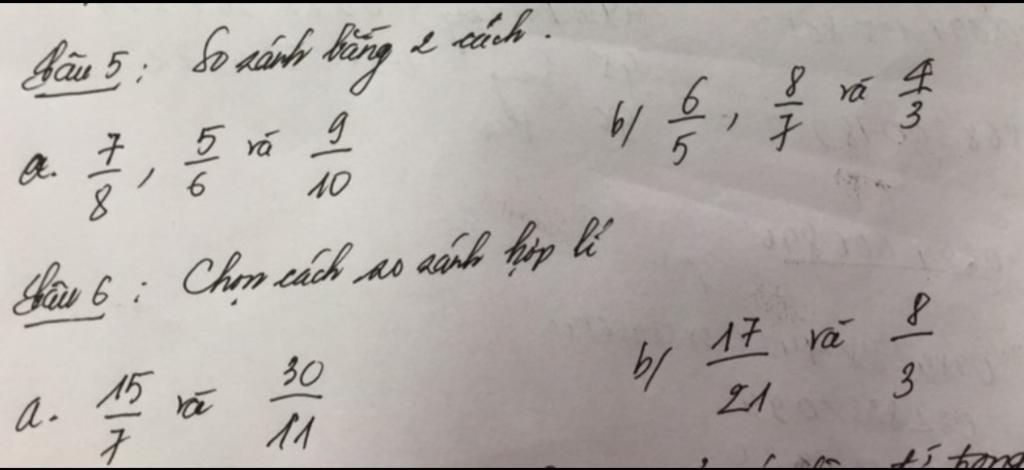 Câu 5 : So sánh bằng 2 cách.
a. 7/8, 5/6 và 9/10 b/ 6/5, 8/7 và 4/3
Câu 6 : Chọn cách so sánh hợp lí
a. 15/7 và 30/11 b/ 17/21 và 8/3